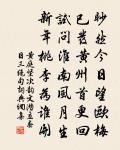 眇然今日望歐梅
已發黃州首更回
試問淮南風月主
新年桃李為誰開
黃庭堅次韻文潛立春
日三絕句詞典網集